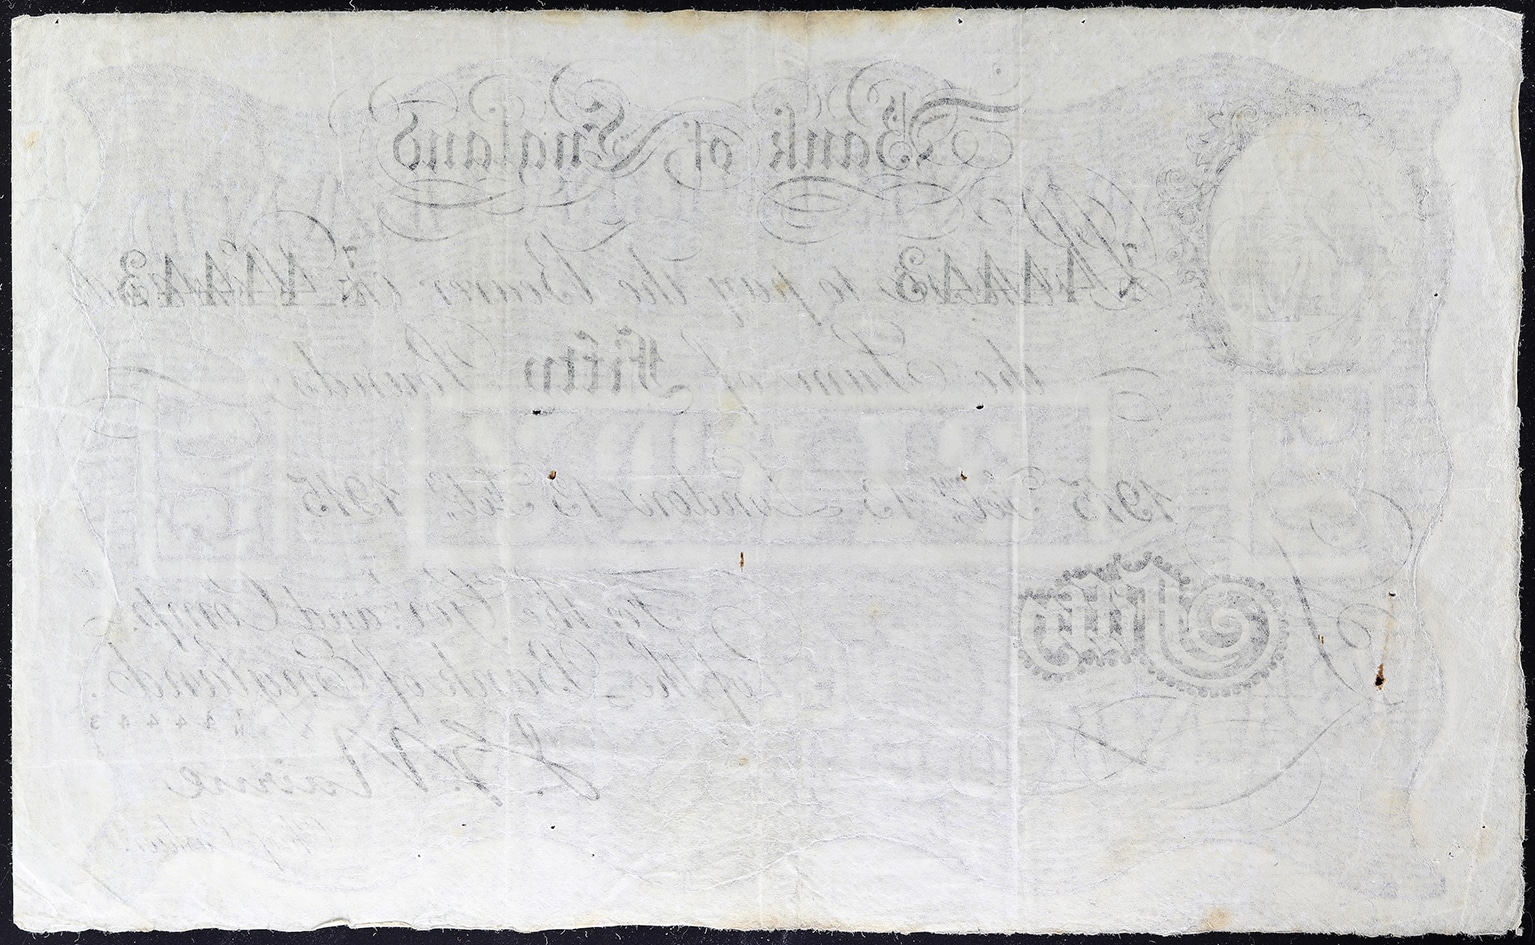 Bank of England
44443 to pay the Bearer on 44443
the Sum of Fifty Pounds
1915 Feby. 13 London 13 Feby. 1915
Fifty
For the Govr. and Compa.
of the Bank of England.
44443
J. G. Nairne